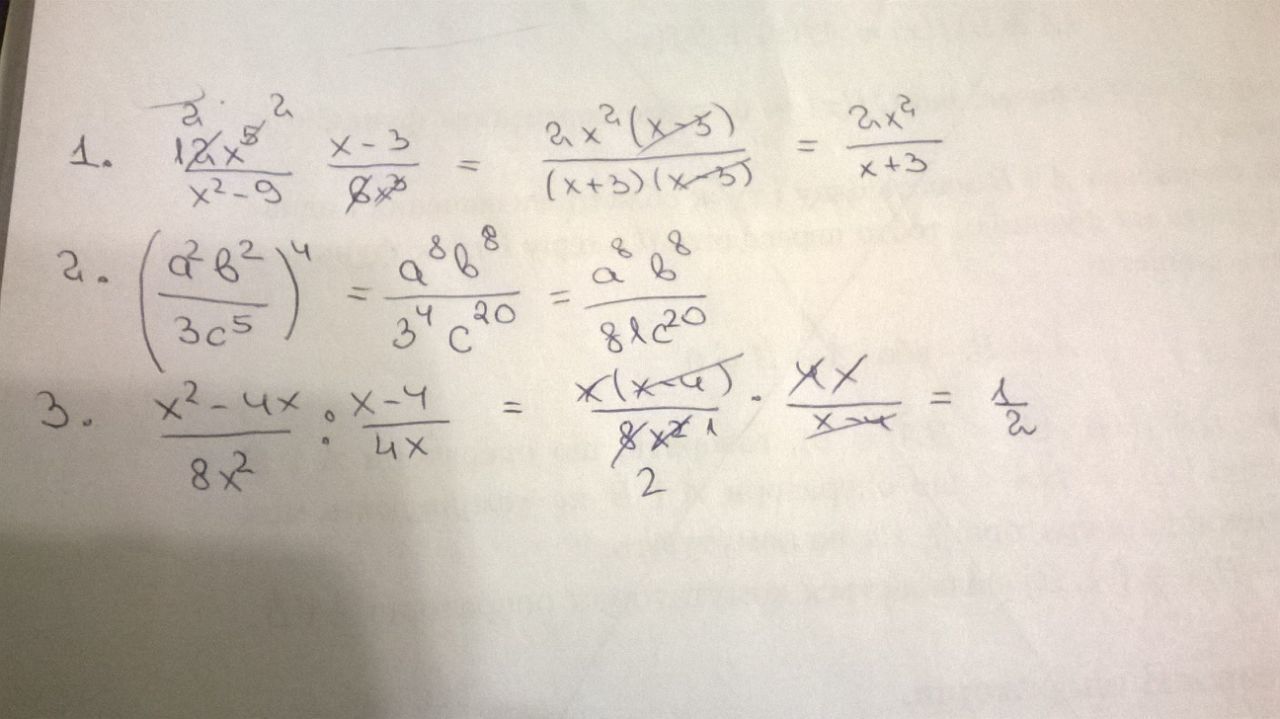 1. 12x⁵/(x² - 9) (x - 3)/(6x³) = 2x²(x-3)/((x+3)(x-3)) = 2x²/(x+3)
2. (a²b²/(3c⁵))⁴ = a⁸b⁸/(3⁴c²⁰) = a⁸b⁸/(81c²⁰)
3. (x² - 4x)/(8x²) : (x-4)/(4x) = x(x-4)/(8x²) · 4x/(x-4) = 1/2